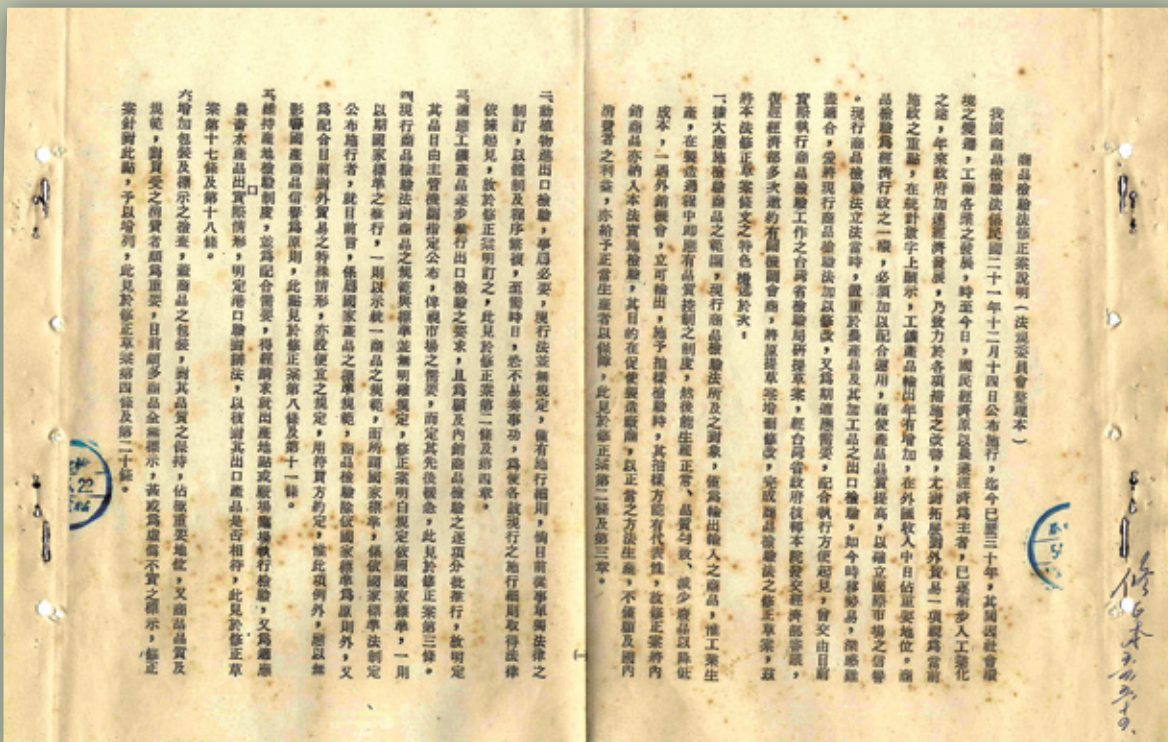 商品檢驗法修正案說明(法規委員會整理本)
我國商品檢驗法係民國二十一年十二月十四日公布施行,迄今已歷三十年,其間因社會環
境之變遷,工商各業之發展,時至今日,國民經濟原以農業經濟為主者,已逐漸步入工業化
之途,年來政府加速經濟發展,乃致力於各項措施之改善,尤對拓展對外貿易一項視為當前
施政之重點,在統計數字上顯示,工礦產品輸出年有增加,在外匯收入中日佔重要地位。商
品檢驗為經濟行政之一環,必須加以配合運用,藉使產品品質提高,以確立國際市場之信譽
。現行商品檢驗法立法當時,置重於農產品及其加工品之出口檢驗,如今時移勢易,深感難
盡適合,爰將現行商品檢驗法加以修改,又為期適應需要,配合執行方便起見,曾交由目前
實際執行商品檢驗工作之台灣省檢驗局研擬草案,經台灣省政府核轉本院發交經濟部審議,
復經經濟部多次邀約有關機關會商,將原擬草案增刪修改,完成商品檢驗法之修正草案,茲
將本法修正草案條文之特色 述於次:
一、擴大應施檢驗商品之範圍,現行商品檢驗法所及之對象,僅為輸出輸入之商品,惟工業生
產,在製造過程中即應有品質控制之制度,然後能生產正常、品質勻致、減少廢品以降低
成本,一遇外銷機會,立可輸出,施予抽樣檢驗時,其抽樣方能有代表性,故修正案將內
銷商品亦納入本法實施檢驗,其目的在促使製造廠商,以正當之方法生產,不僅顧及國內
消費者之利益,亦給予正當生產者以保障,此見於修正案第二條及第三章。
(一)
二、動植物進出口檢驗,事屬必要,現行法並無規定,僅有施行細則,倘目前從事單獨法律之
制訂,以體制及程序繁複,至需時日,恐不易奏事功,為使各該現行之施行細則取得法律
依據起見,故於修正案明訂之,此見於修正案第二條及第四章。
三、適應工礦產品逐步舉行出口檢驗之要求,且為顧及內銷商品檢驗之逐項分批推行,故明定
其品目由主管機關指定公布,俾視市場之需要,而定其先後緩急,此見於修正案第三條。
四、現行商品檢驗法對商品之規範與標準並無明確規定,修正案明白規定依照國家標準,一則
以期國家標準之推行,一則以示統一商品之規範,而所謂國家標準,係依國家標準法制定
公布施行者,就目前言,係屬國家產品之標準規範,商品檢驗除依國家標準為原則外,又
為配合目前對外貿易之特殊情形,亦設便宜之規定,用符買賣約定,惟此項例外,應以無
影響國產商品信譽為原則,此點見於修正案第八條及第十一條。
五、維持產地檢驗制度,並為配合需要,得經請求就出產地點或廠場臨場執行檢驗,又為適應
農畜水產品出口實際情形,明定港口驗對辦法,以核對其出口產品是否相符,此見於修正草
案第十七條及第十八條。
六、增加包裝及標示之檢查,蓋商品之包裝,對其品質之保持,佔極重要地位,又商品品質及
規範,對買受之消費者頗為重要,目前頗多商品全無標示,甚或為虛偽不實之標示,修正
案針對此點,予以增列,此見於修正草案第四條及第二十條。
22